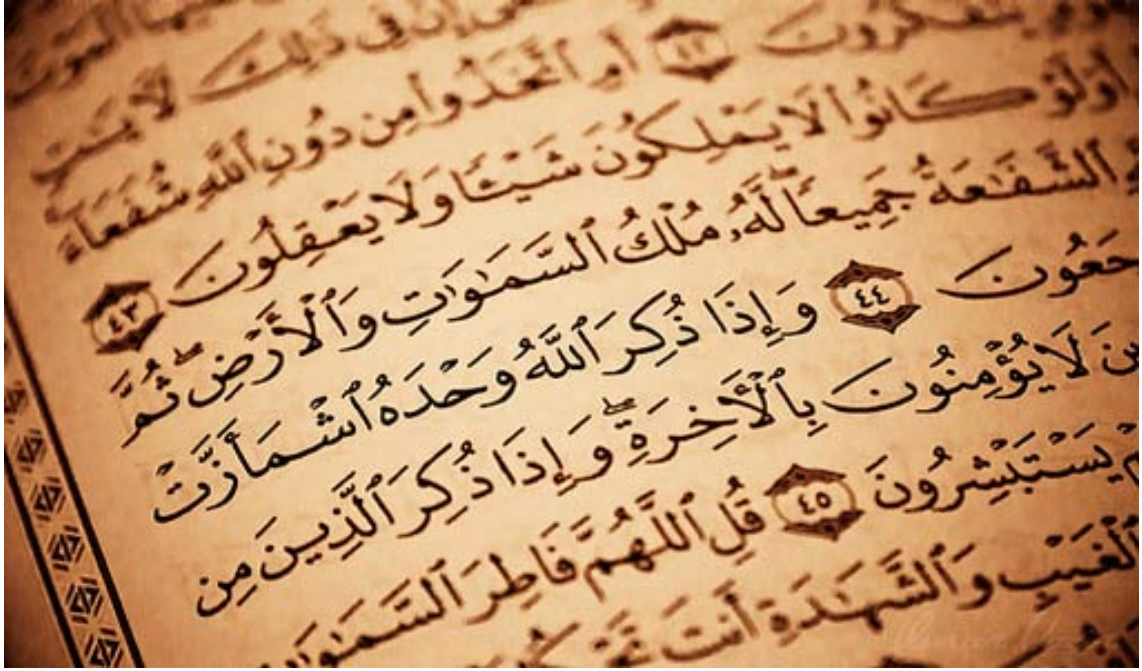 يَتَفَكَّرُونَ ٤٢ أَمِ ٱتَّخَذُوا۟ مِن دُونِ ٱللَّهِ شُفَعَآءَ
أَوَلَوْ كَانُوا۟ لَا يَمْلِكُونَ شَيْـًٔا وَلَا يَعْقِلُونَ ٤٣
ٱلشَّفَـٰعَةُ جَمِيعًا ۖ لَّهُۥ مُلْكُ ٱلسَّمَـٰوَٰتِ وَٱلْأَرْضِ ۖ ثُمَّ
جَعُونَ ٤٤ وَإِذَا ذُكِرَ ٱللَّهُ وَحْدَهُ ٱشْمَأَزَّتْ
ينَ لَا يُؤْمِنُونَ بِٱلْـَٔاخِرَةِ ۖ وَإِذَا ذُكِرَ ٱلَّذِينَ مِن
يَسْتَبْشِرُونَ ٤٥ قُلِ ٱللَّهُمَّ فَاطِرَ ٱلسَّمَـٰوَٰتِ
ٱلْغَيْبِ وَٱلشَّهَـٰدَةِ أَنتَ تَحْكُمُ